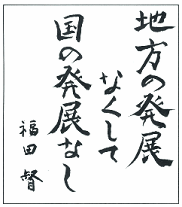 地方の発展
なくして
国の発展なし
福田督